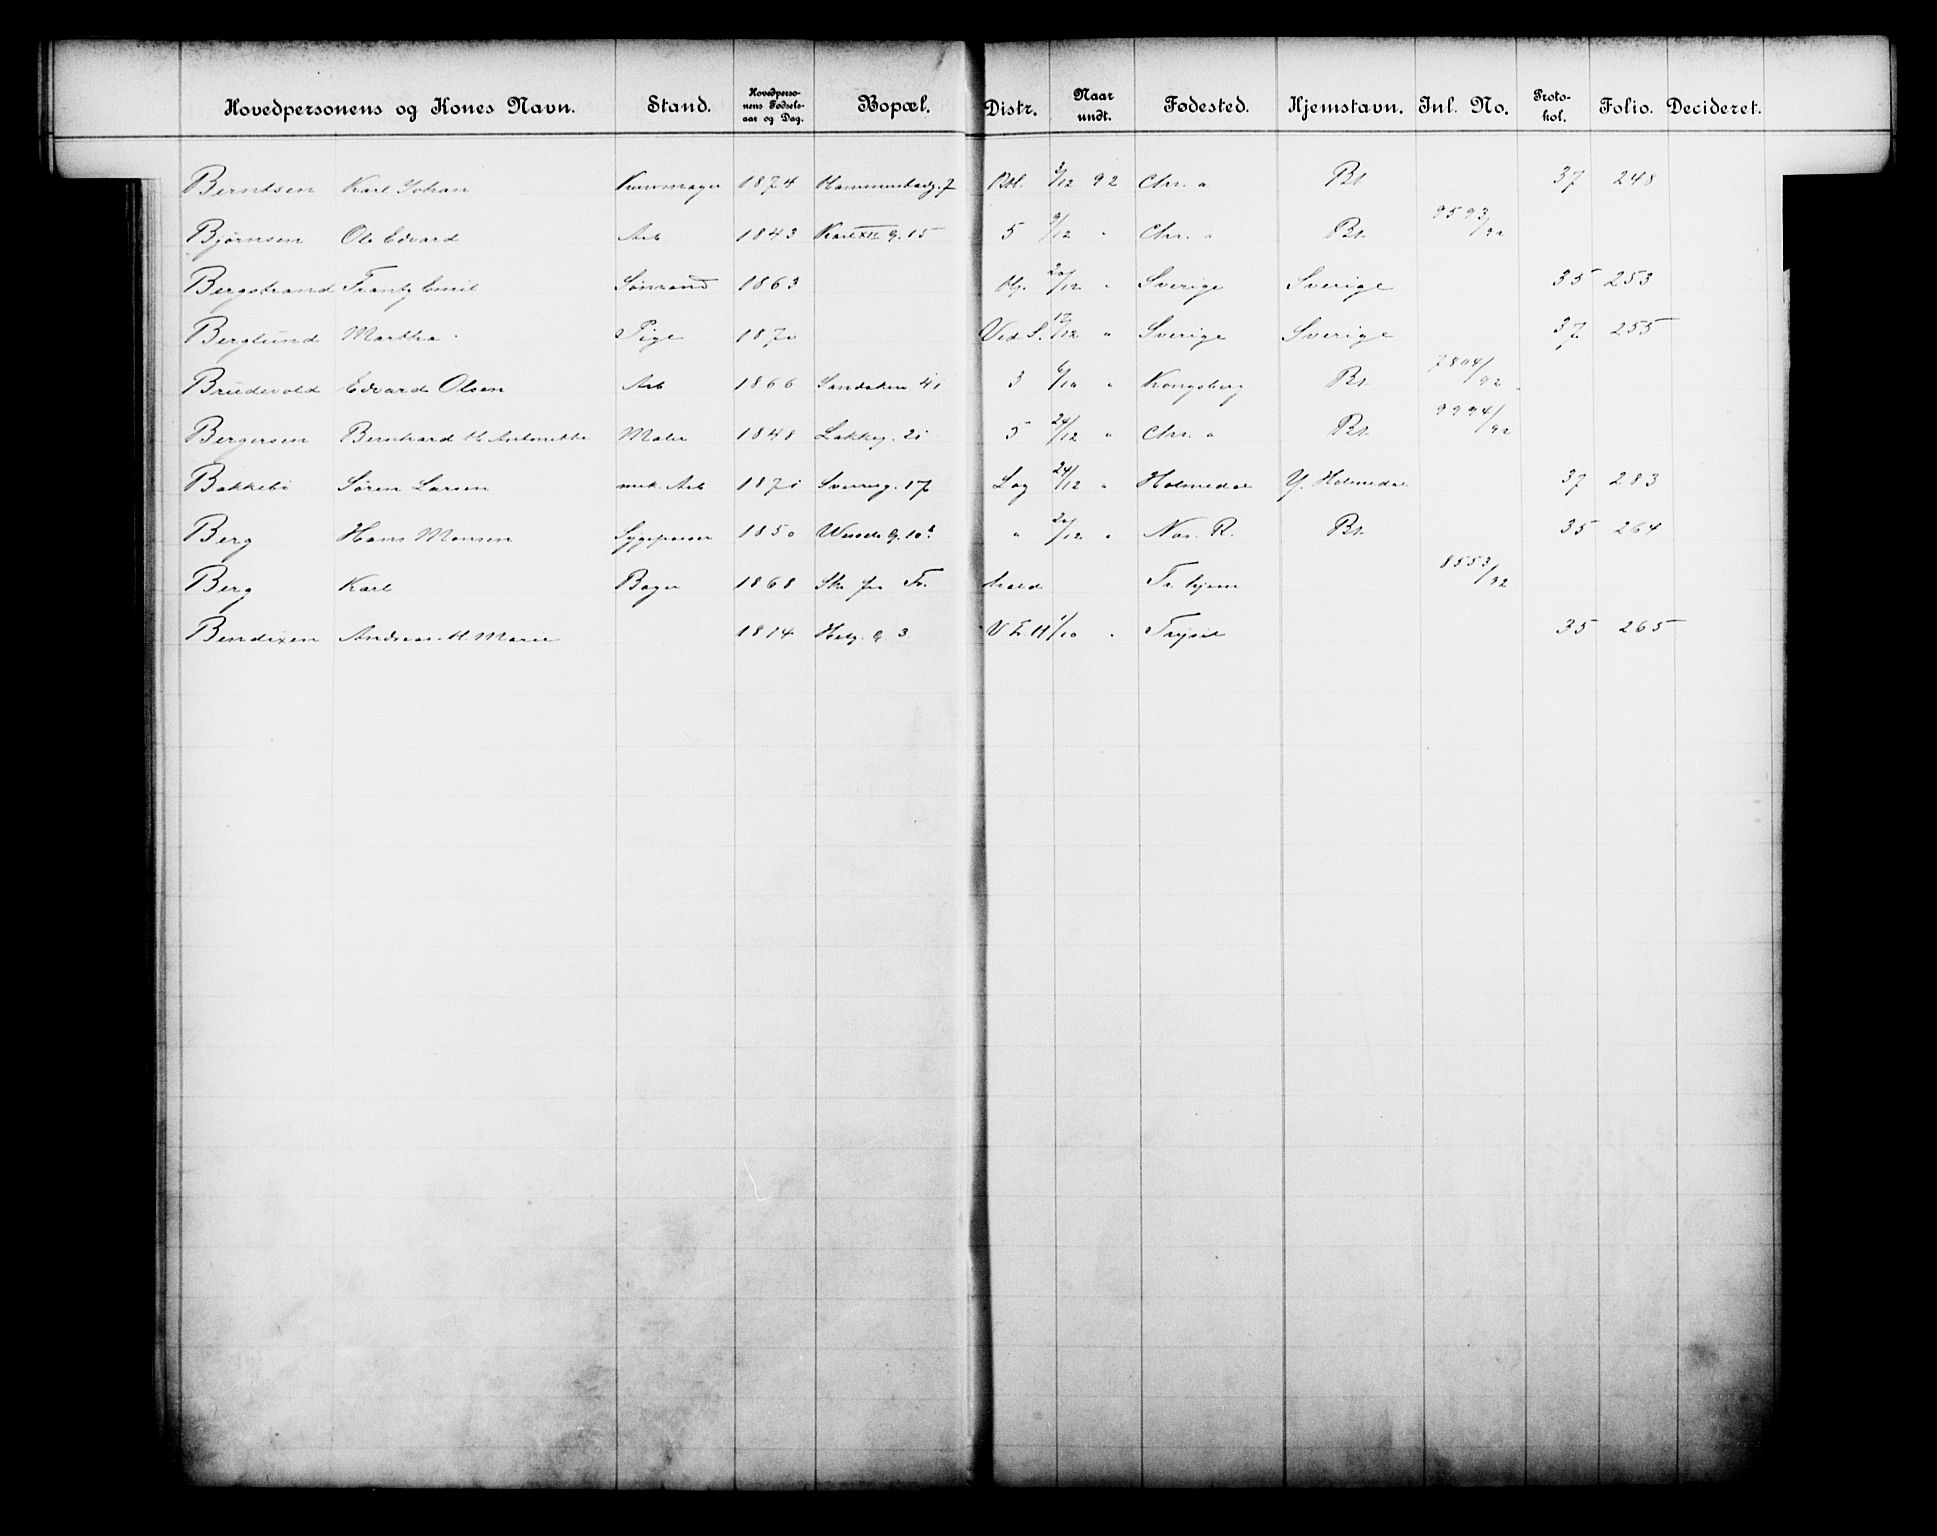 Hovedpersonens og Kones Navn. Stand. Hovedpersonens Fødselsaar og Dag. Bopæl. Distr. Naar undt. Fødested. Hjemstavn. Inl. No. Protokol. Folio. Decideret.
Berntsen Karl Johan Kurvmager 1874 Hammerstadg. 7 3/12 92 Chr. a Bt. 37 248
Bjørnsen Ole Edvard Arb 1843 Karl XII g. 15 5 9/12 " Chr. a Bt. 9593/92
Bergstrand Frantz Emil Sømand 1863 20/12 " Sverige Sverige 35 253
Berglund Martha Pige 1870 Ved S. 17/12 " Sverige Sverige 37 255
Brudevold Edvard Olsen Arb 1866 Sandaker 41 3 6/10 " Kongsberg Bt. 7804/92
Bergersen Bernhard H. Antonette Maler 1848 Lakkeg. 21 5 24/12 " Chr. a Bt. 9994/92
Bakkebö Søren Larsen mek. Arb 1871 Sverreg. 17 Lag 24/12 " Holmedal Y. Holmedal 37 283
Berg Hans Monsen Sygepasser 1850 Wessels g. 10 " 20/12 " Nas. R. Bt. 35 264
Berg Karl Bager 1868 Sk. fra Fr. hald Tr. hjem 8553/92
Bendixen Andreas H. Marie 1814 Helg. g. 3 1/10 " Trysil 35 265